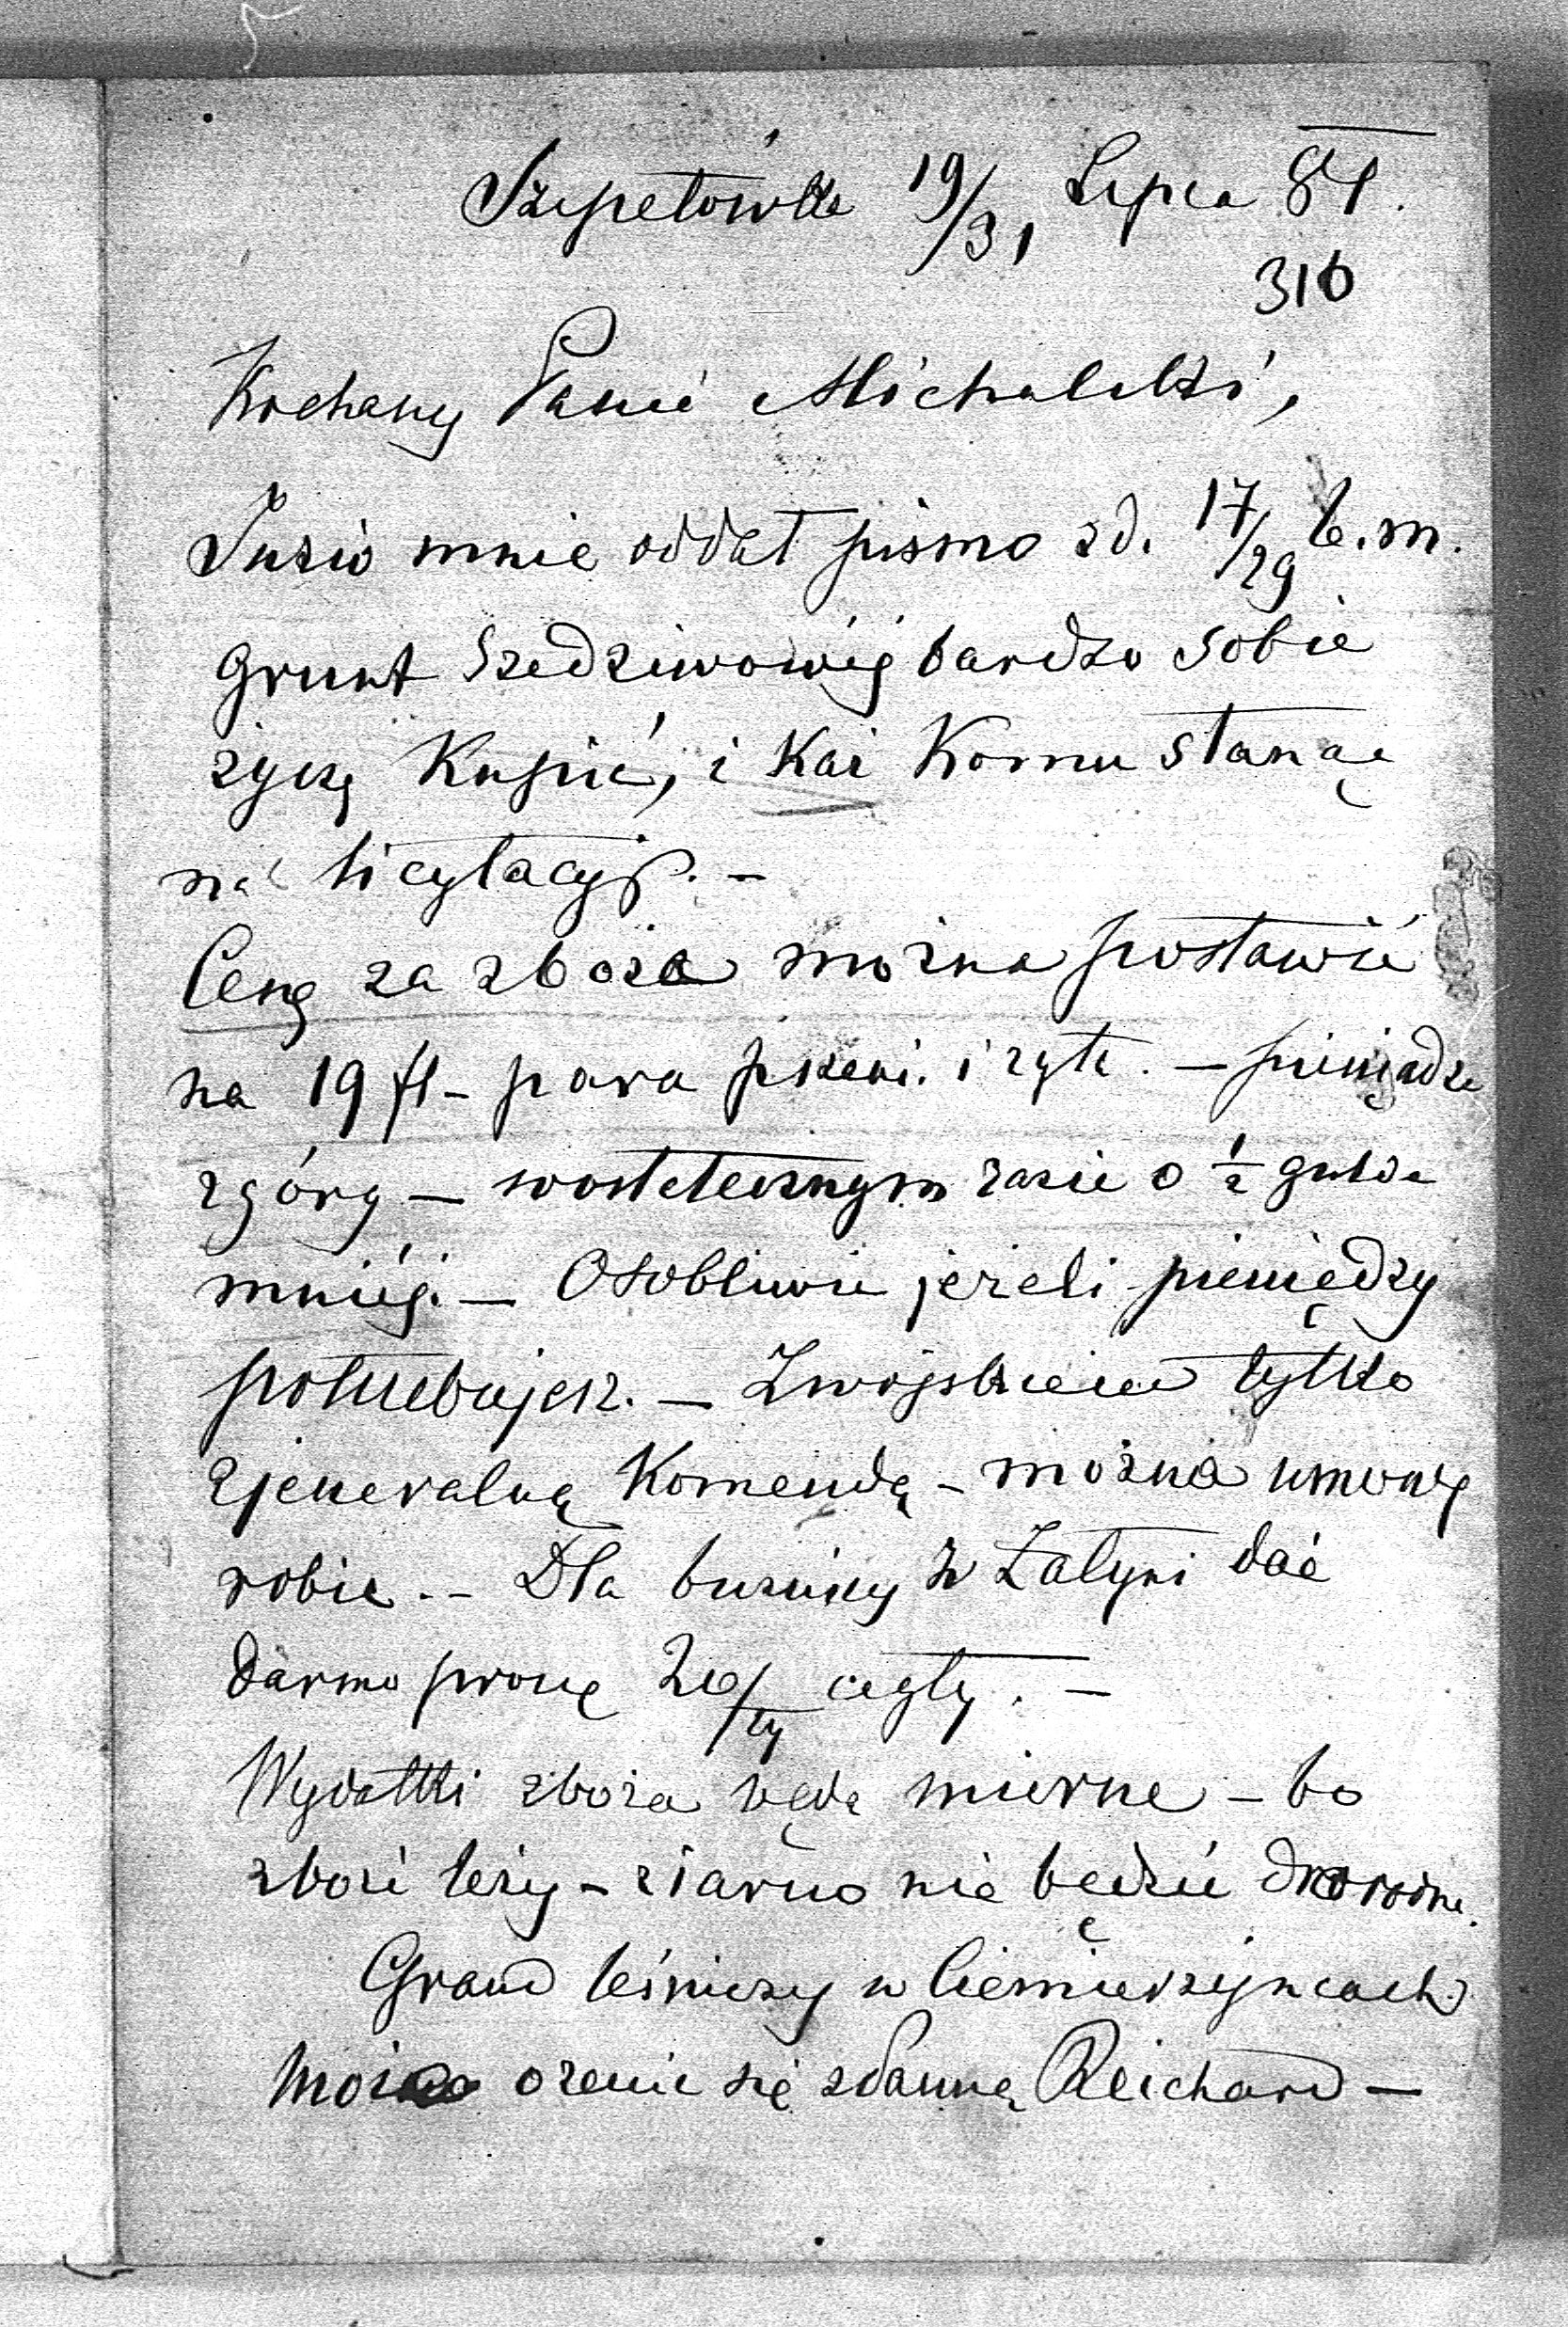 Szepetówka 19/31 Lipca 81.
316
Kochany Panie Michalski,
Juzio mnie oddał pismo zd. 17/29 b.m.
Grunt Szedziwowéj bardzo sobie
życzę Kupić, i Każ Komu stanąć
na licytacyi. –
Cenę za zboże można postawić
na 19 fl – para pszeni. i żyta. – pieniądze
zgóry – wostatecznym razie o ½ gulde
mniéj. – Osobliwie jeżeli pieniędzy
potrzebujesz. – Zwojskiem tylko
zjeneralną Komendą – można umowę
robić. – Dla buźnicy w Żałyni dać
darmo proszę 20/ty cegły. –
Wydatki zboża będą mierne – bo
zboże leży – ziarno nie będzie dorodne.
Grand leśniczy w Ciemierzyńcach
może ożenić się zdanną Reichard –